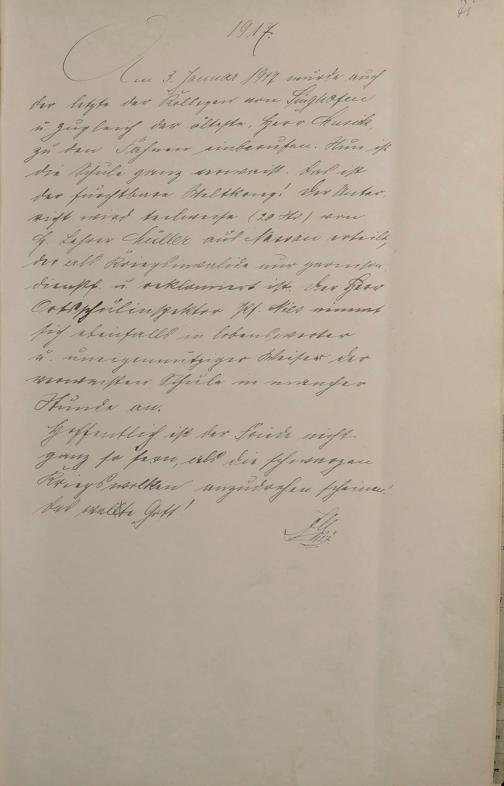 1917.
Am 3. Januar 1917 wurde auch
der letzte der Kollegen von Singhofen
u. zugleich der älteste, Herr
zu den Fahnen einberufen. Nun ist
die Schule ganz verwaist. Das ist
der furchtbare Weltkrieg! Der Unter-
richt wird teilweise (20 Std) von
H. Lehrer Müller aus Nassau erteilt,
der als Kriegsinvalide nur garnison-
dienstf. u. reklamiert ist. Der Herr
Ortsschulinspektor Pfr. nimmt
sich ebenfalls in lobenswerter
u. uneigennütziger Weise der
verwaisten Schule in mancher
Stunde an.
Hoffentlich ist der Friede nicht
ganz so fern, als die schwarzen
Kriegswolken anzudrohen scheinen!
Das walte Gott!